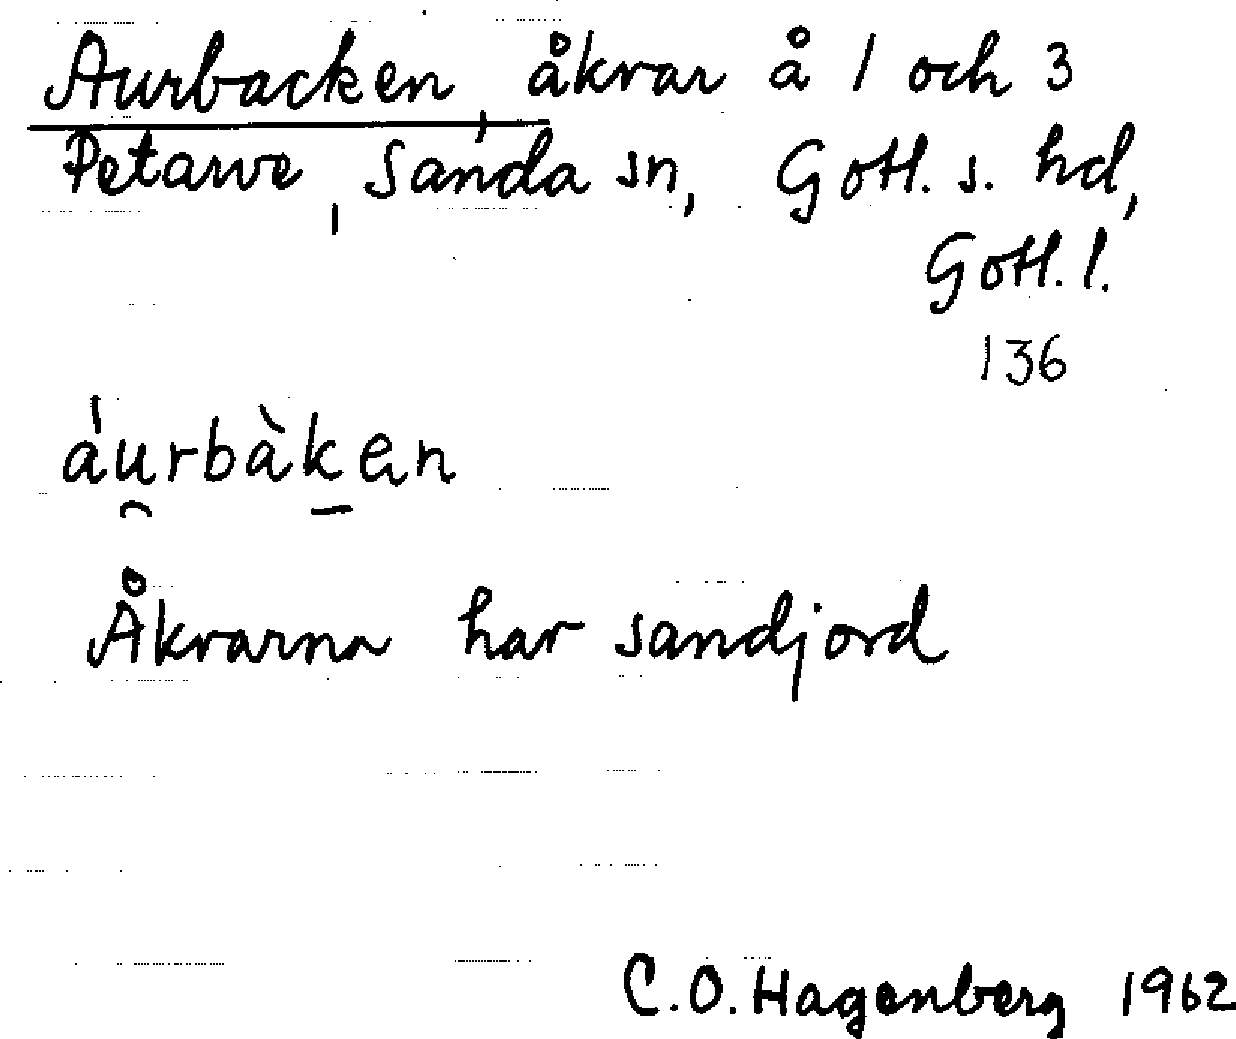 Aurbacken, åkrar å 1 och 3
Petarve, Sanda sn, Gotl. s. hd,
Gotl. l.
136
áu̯rbàk̠en
Åkrarna har sandjord
C.O. Hagenberg 1962